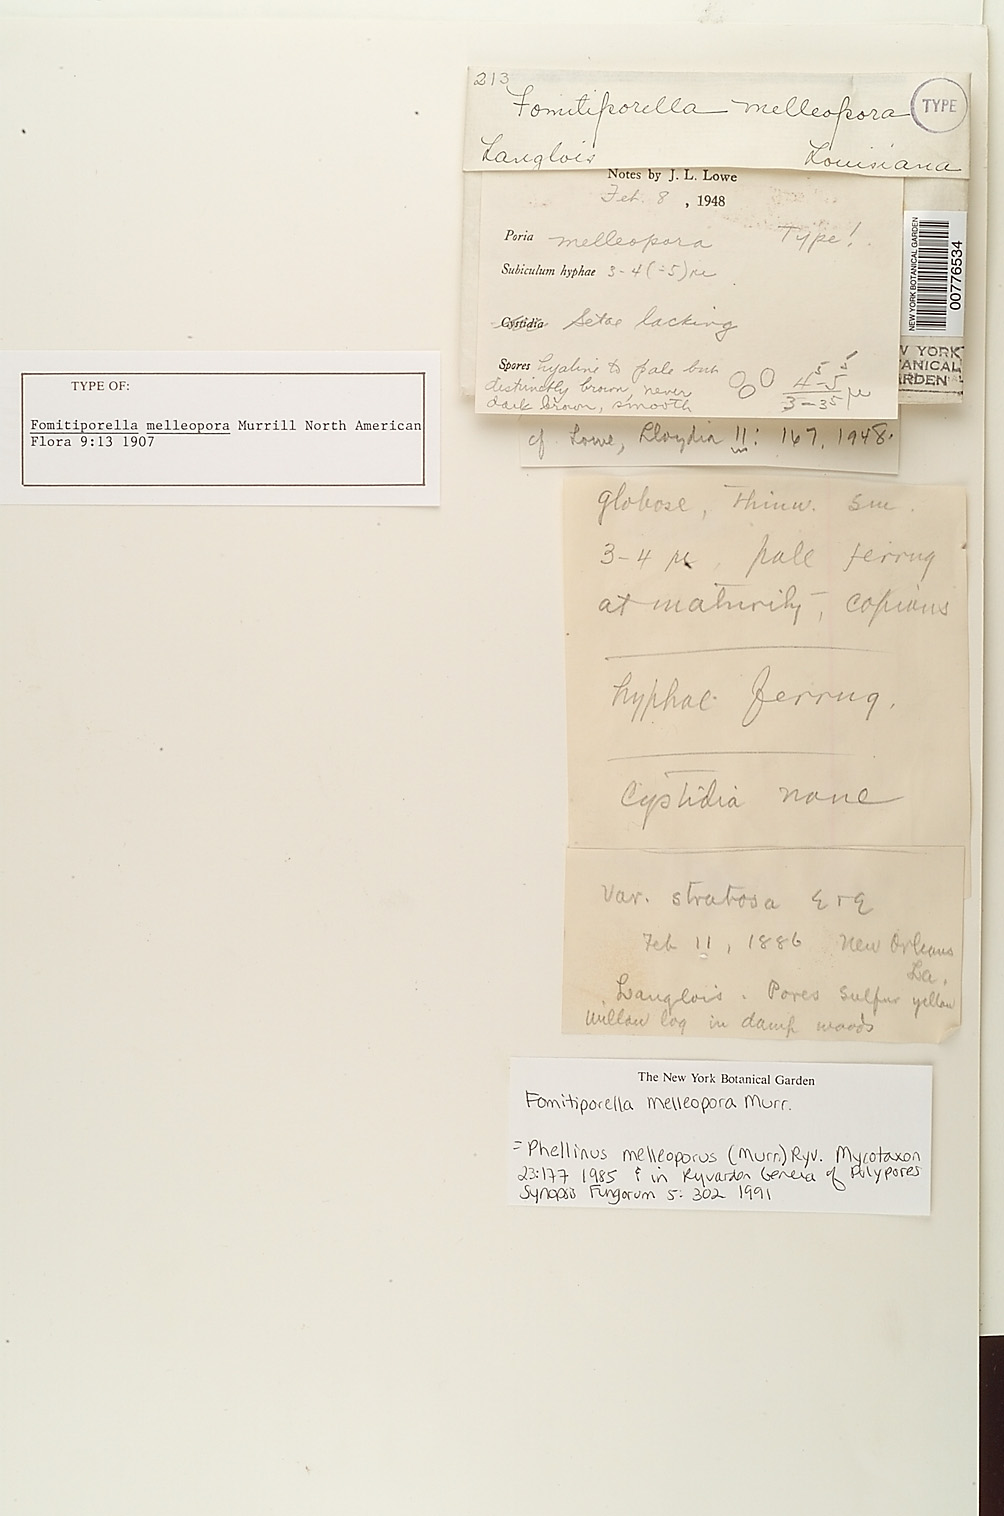 213
Fomitiporella melleopora
TYPE
Langlois Louisiana
Notes by J. L. Lowe
Feb. 8, 1948
Poria melleopora Type!
Subiculum hyphae 3-4(-5)µ
Cystidia Setae lacking
Spores hyaline to pale but
distinctly brown, never
dark brown, smooth
4-5
3-3.5 µ
cf. Lowe, Lloydia 11: 167, 1948.
NEW YORK BOTANICAL GARDEN
00776534
W YORK
TANICAL
ARDEN
TYPE OF:
Fomitiporella melleopora Murrill North American
Flora 9:13 1907
globose, Thinw. sm.
3-4 µ, pale ferrug
at maturity, copious
hyphae ferrug.
Cystidia none
Var. stratosa E+E
Feb 11, 1886 New Orleans
La.
Langlois. Pores sulfur yellow
Willow log in damp woods
The New York Botanical Garden
Fomitiporella melleopora Murr.
= Phellinus melleoporus (Murr.) Ryv. Mycotaxon
23:177 1985 & in Ryvarden Genera of Polypores
Synopsis Fungorum 5: 302 1991